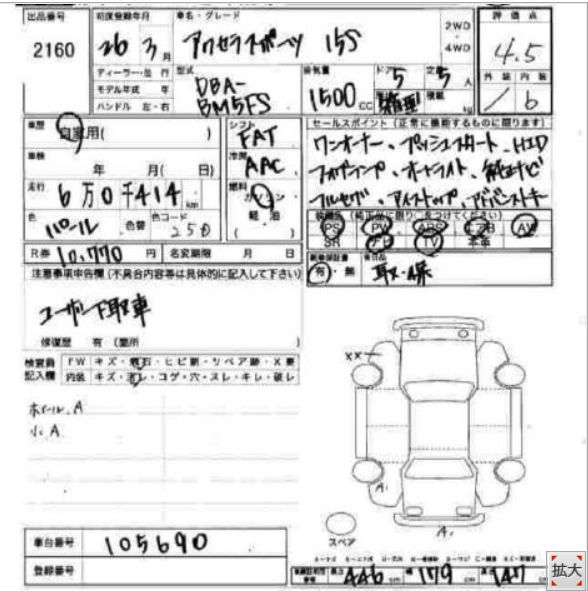 出品番号 初度登録年月 車名・グレード 評価点
2160 26 3月 アクセラスポーツ 15S 2WD 4WD 4.5
ディーラー・並行 型式 排気量 ドア 定員 外装 内装
モデル年式 年 DBA- 1500cc 5 5人
ハンドル 左・右 BM5FS 積載 kg / 6
車歴 自家用( ) シフト FAT セールスポイント(正常に機能するものに限ります)
車検 年 月( 日) 冷房 AAC ワンオーナー、プッシュスタート、HID
走行 6万0千414km 燃料 ガソリン・軽油 フォグランプ、オートライト、純正ナビ
色 パール 色替 色コード 25D ( ) フルセグ、アイストップ、アドバンストキー
装備品(純正品に限り○をつけてください)
PS PW ABS エアB AW
SR ナビ TV 本革
R券 10,770円 名変期限 月 日
新車保証書 有・無 取・保
注意事項申告欄(不具合内容等は具体的に記入して下さい)
ユーザー下取車
修復歴 有(箇所 )
検査員記入欄 FW キズ・飛石・ヒビ割・リペア跡・X要
内装 キズ・汚レ・コゲ・穴・スレ・キレ・破レ
ホイール、A
小、A
XX
A1
A1
スペア
車台番号 105690
登録番号
長さ 446cm 幅 179cm 高さ 147cm
拡大